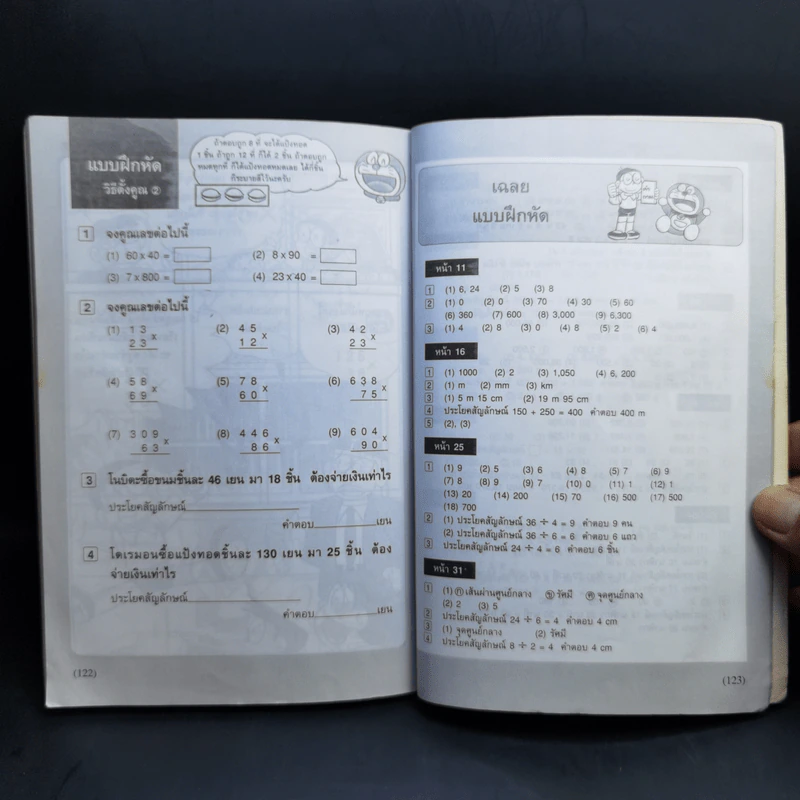 แบบฝึกหัด
วิธีตั้งคูณ ②
ถ้าตอบถูก 8 ที่ จะได้แป้งทอด
1 ชิ้น ถ้าถูก 12 ที่ ก็ได้ 2 ชิ้น ถ้าตอบถูก
หมดทุกที่ ก็ได้แป้งทอดหมดเลย ได้กี่ชิ้น
ก็ระบายสีไว้นะครับ
1 จงคูณเลขต่อไปนี้
(1) 60 x 40 = (2) 8 x 90 =
(3) 7 x 800 = (4) 23 x 40 =
2 จงคูณเลขต่อไปนี้
(1) 1 3 (2) 4 5 (3) 4 2
2 3 x 1 2 x 2 3 x
(4) 5 8 (5) 7 8 (6) 6 3 8
6 9 x 6 0 x 7 5 x
(7) 3 0 9 (8) 4 4 6 (9) 6 0 4
6 3 x 8 6 x 9 0 x
3 โนบิตะซื้อขนมชิ้นละ 46 เยน มา 18 ชิ้น ต้องจ่ายเงินเท่าไร
ประโยคสัญลักษณ์
คำตอบ เยน
4 โดเรมอนซื้อแป้งทอดชิ้นละ 130 เยน มา 25 ชิ้น ต้อง
จ่ายเงินเท่าไร
ประโยคสัญลักษณ์
คำตอบ เยน
(122)
เฉลย
แบบฝึกหัด
หน้า 11
1 (1) 6, 24 (2) 5 (3) 8
2 (1) 0 (2) 0 (3) 70 (4) 30 (5) 60
(6) 360 (7) 600 (8) 3,000 (9) 6,300
3 (1) 4 (2) 8 (3) 0 (4) 8 (5) 2 (6) 4
หน้า 16
1 (1) 1000 (2) 2 (3) 1,050 (4) 6, 200
2 (1) m (2) mm (3) km
3 (1) 5 m 15 cm (2) 19 m 95 cm
4 ประโยคสัญลักษณ์ 150 + 250 = 400 คำตอบ 400 m
5 (2), (3)
หน้า 25
1 (1) 9 (2) 5 (3) 6 (4) 8 (5) 7 (6) 9
(7) 8 (8) 9 (9) 7 (10) 0 (11) 1 (12) 1
(13) 20 (14) 200 (15) 70 (16) 500 (17) 500
(18) 700
2 (1) ประโยคสัญลักษณ์ 36 ÷ 4 = 9 คำตอบ 9 คน
(2) ประโยคสัญลักษณ์ 36 ÷ 6 = 6 คำตอบ 6 แถว
3 ประโยคสัญลักษณ์ 24 ÷ 4 = 6 คำตอบ 6 ชิ้น
หน้า 31
1 (1) ก เส้นผ่านศูนย์กลาง ข รัศมี ค จุดศูนย์กลาง
(2) 2 (3) 5
2 ประโยคสัญลักษณ์ 24 ÷ 6 = 4 คำตอบ 4 cm
3 (1) จุดศูนย์กลาง (2) รัศมี
4 ประโยคสัญลักษณ์ 8 ÷ 2 = 4 คำตอบ 4 cm
(123)